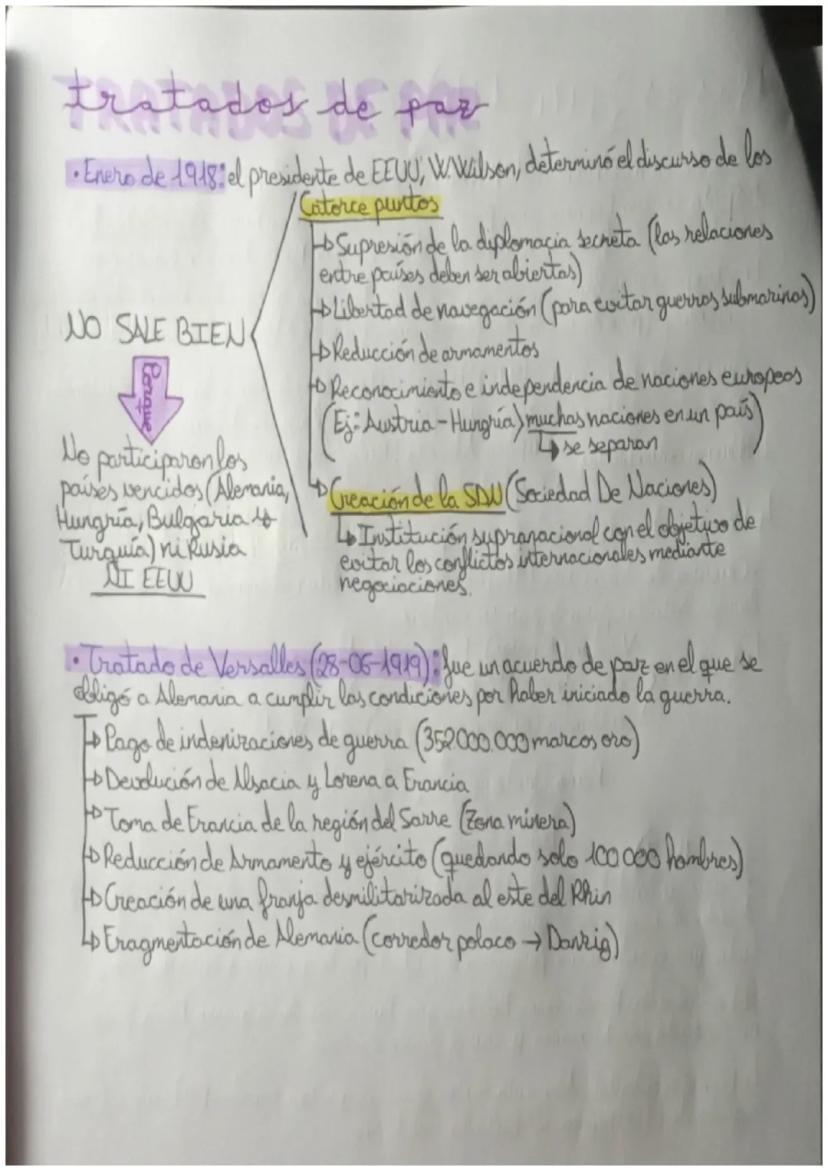 tratados de paz
• Enero de 1918: el presidente de EEUU, W.Wilson, determinó el discurso de los
Catorce puntos
↳ Supresión de la diplomacia secreta (las relaciones
entre países deben ser abiertas)
↳ Libertad de navegación (para evitar guerras submarinas)
↳ Reducción de armamentos
↳ Reconocimiento e independencia de naciones europeas
(Ej: Austria-Hungría) muchas naciones en un país)
↳ se separan
↳ Creación de la SDN (Sociedad De Naciones)
↳ Institución supranacional con el objetivo de
evitar los conflictos internacionales mediante
negociaciones.
NO SALE BIEN
Porque
No participaron los
países vencidos (Alemania,
Hungría, Bulgaria
Turquía) ni Rusia
NI EEUU
• Tratado de Versalles (28-06-1919): fue un acuerdo de paz en el que se
obligó a Alemania a cumplir las condiciones por haber iniciado la guerra.
↳ Pago de indenizaciones de guerra (352000.000 marcos oro)
↳ Devolución de Alsacia y Lorena a Francia
↳ Toma de Francia de la región del Sarre (Zona minera)
↳ Reducción de Armamento y ejército (quedando solo 100000 hombres)
↳ Creación de una franja desmilitarizada al este del Rhin
↳ Fragmentación de Alemania (corredor polaco → Danzig)